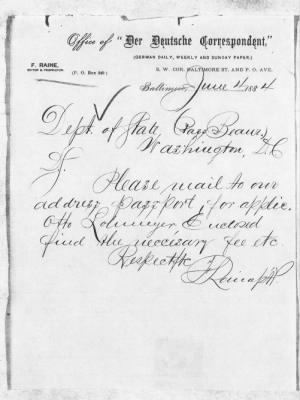 Office of "Der Deutsche Correspondent,"
(GERMAN DAILY, WEEKLY AND SUNDAY PAPER.)
F. RAINE,
EDITOR & PROPRIETOR.
(P. O. Box 240)
S. W. COR. BALTIMORE ST. AND P. O. AVE.
Baltimore, June 4 1884
Dept. of State,
Washington, D.C
Please mail to our
address, Passport, for applic.
Otto Lohmeyer, Enclosed
find the neccesary fee etc.
Respectf
F Raine